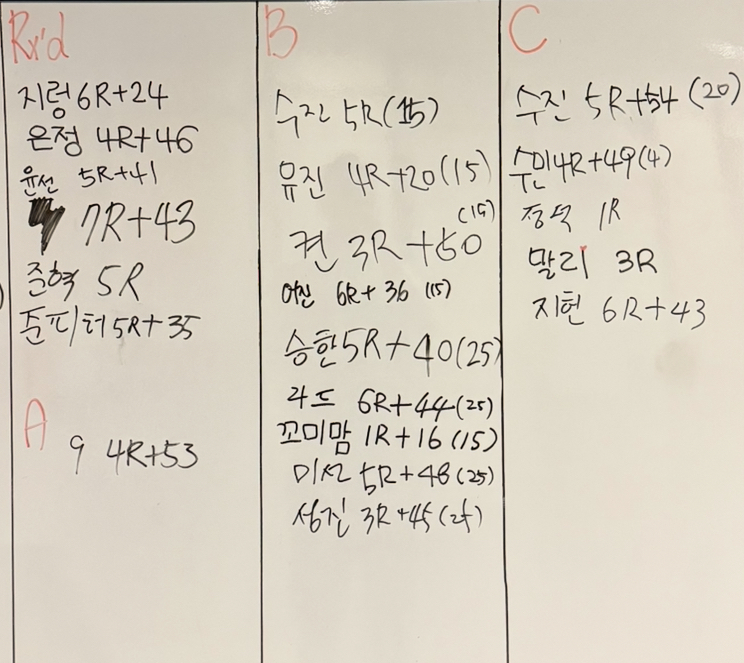 Rx'd
지렁 6R+24
은정 4R+46
윤선 5R+41
7R+43
준혁 5R
준피터 5R+35
A
9 4R+53
B
수진 5R(15)
유진 4R+20(15)
켠 3R+50 (15)
어진 6R+36 (15)
승한 5R+40(25)
라드 6R+44(25)
꼬미맘 1R+16(15)
미선 5R+48(25)
성진 3R+45
C
수진 5R+54(20)
수민 4R+49(4)
정석 1R
말리 3R
지현 6R+43